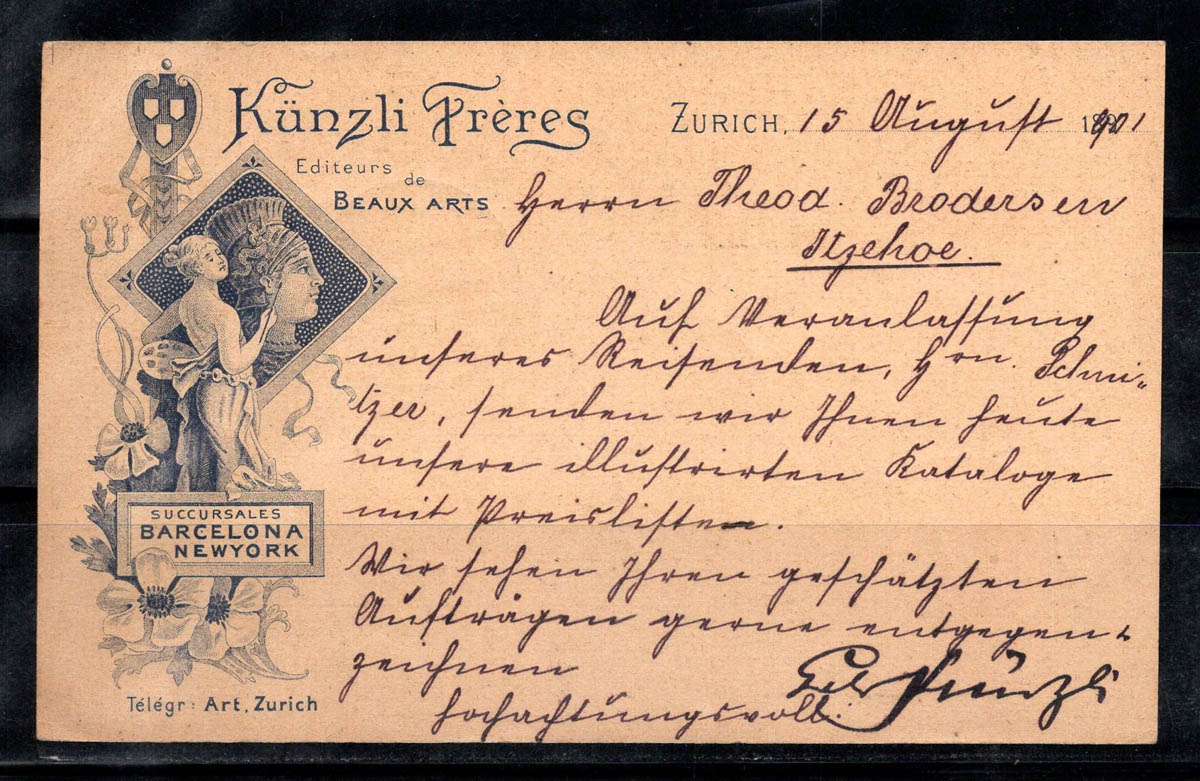 Künzli Frères
Editeurs de
BEAUX ARTS
ZURICH, 15 August 1901
Herrn Theod. Brodersen
Itzehoe.
Auf Veranlassung
unseres Reisenden, Hrn. Schmi-
tzer, senden wir Ihnen heute
unsere illustrirten Kataloge
mit Preislisten.
Wir sehen Ihren geschätzten
Aufträgen gerne entgegen &
zeichnen
hochachtungsvoll.
Künzli
SUCCURSALES
BARCELONA
NEWYORK
Télégr: Art, Zurich